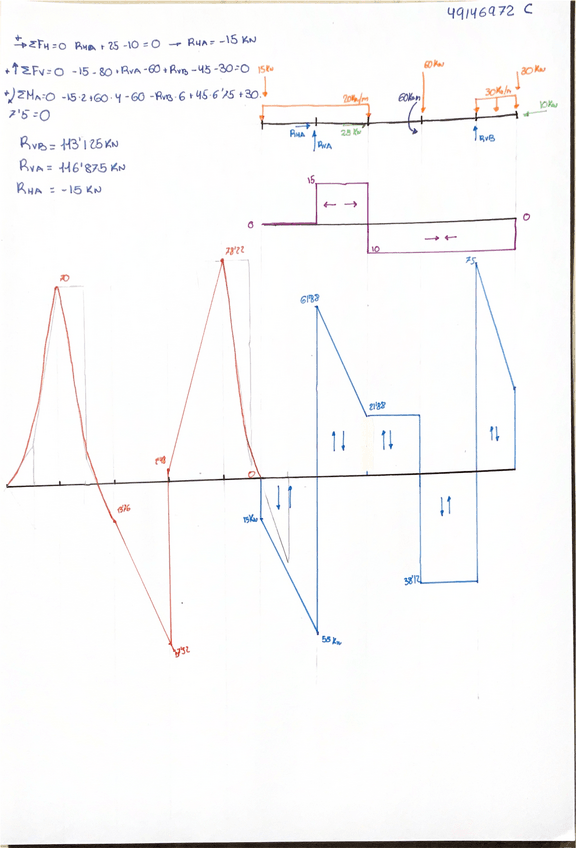 49146972 C
+→ ΣFH=0 RHA + 25 - 10 = 0 → RHA = -15 KN
+↑ ΣFV=0 -15 - 80 + RVA - 60 + RVB - 45 - 30 = 0
+) ΣMA=0 -15·2 + 60·4 - 60 - RVB·6 + 45·6'75 + 30·
7'5 = 0
RVB = 113'125 KN
RVA = 116'875 KN
RHA = -15 KN
15KN
20KN/m
60KN
60KNm
30KN/m
30KN
10KN
RHA
25KN
RVA
RVB
15
0
0
10
70
78'22
61'88
75
21'88
0
15KN
38'12
55KN